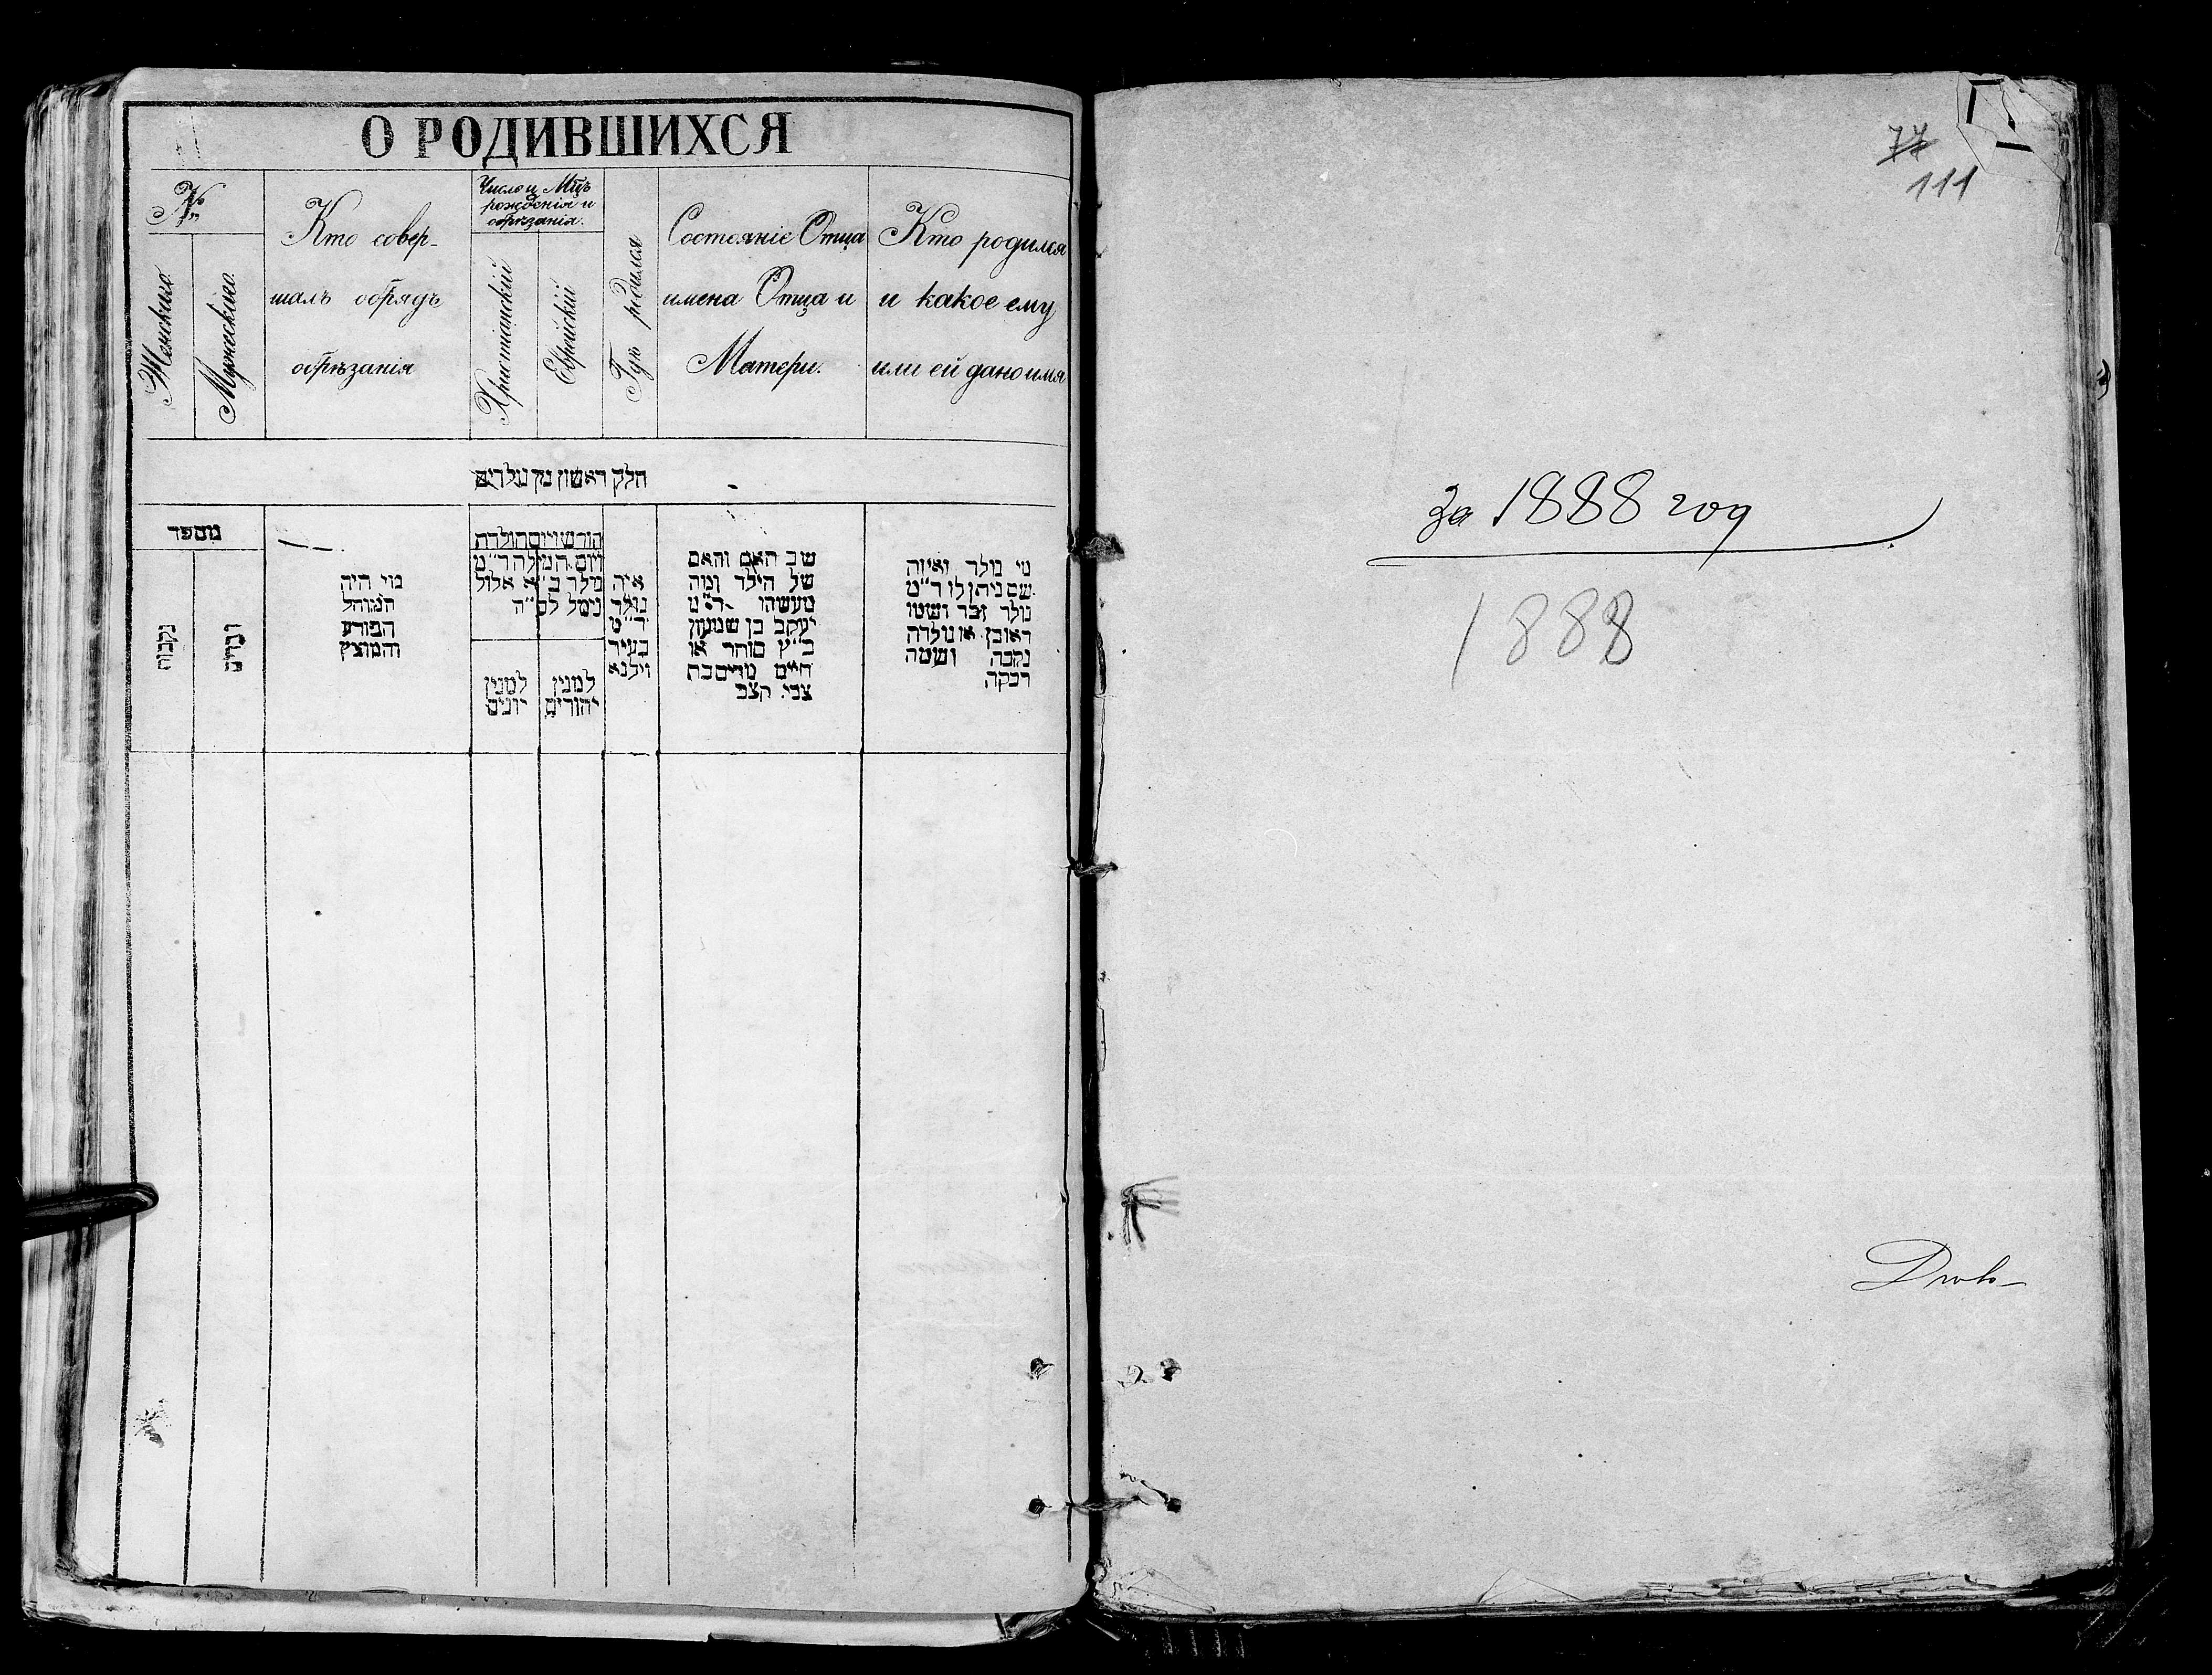 О РОДИВШИХСЯ
№
Женскаго.
Мужескаго.
Кто совер-
шалъ обрядъ
обрѣзанія
Число и Мцъ
рожденія и
обрѣзанія.
Христіанскій
Еврейскій
Гдѣ родился
Состояніе Отца
имена Отца и
Матери.
Кто родился
и какое ему
или ей дано имя
חלק ראשון מן נולדים
מספר
נקבות
זכרים
מי היה
המוהל
הפורע
והמוצץ
חודש ויום הולדת
ויום המילה ד״מ
נולד ב״א אלול
נימל לס״ה
למנין
יונים
למנין
יהודים
איה
נולד
ד״מ
בעיר
וילנא
שב האם והאם
של הילד ומה
מעשהו ד״מ
יעקב בן שמעון
כ״ץ סוחר או
חיים מרים בת
צבי קצב
מי נולד ואיזה
שם ניתן לו ד״מ
נולד זכר ושמו
ראובן או נולדה
נקבה ושמה
רבקה
77
111
За 1888 год
1888